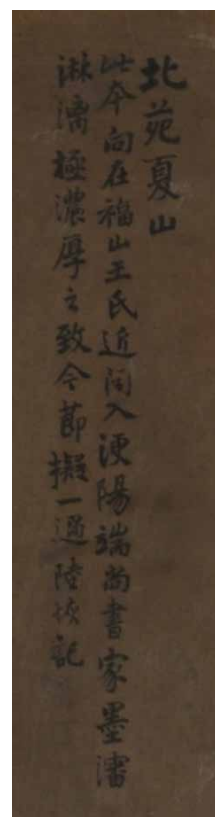 北苑夏山
此本向在福山王氏近闻入浭陽端尚書家墨瀋
淋漓極濃厚之致今節擬一過陸恢記